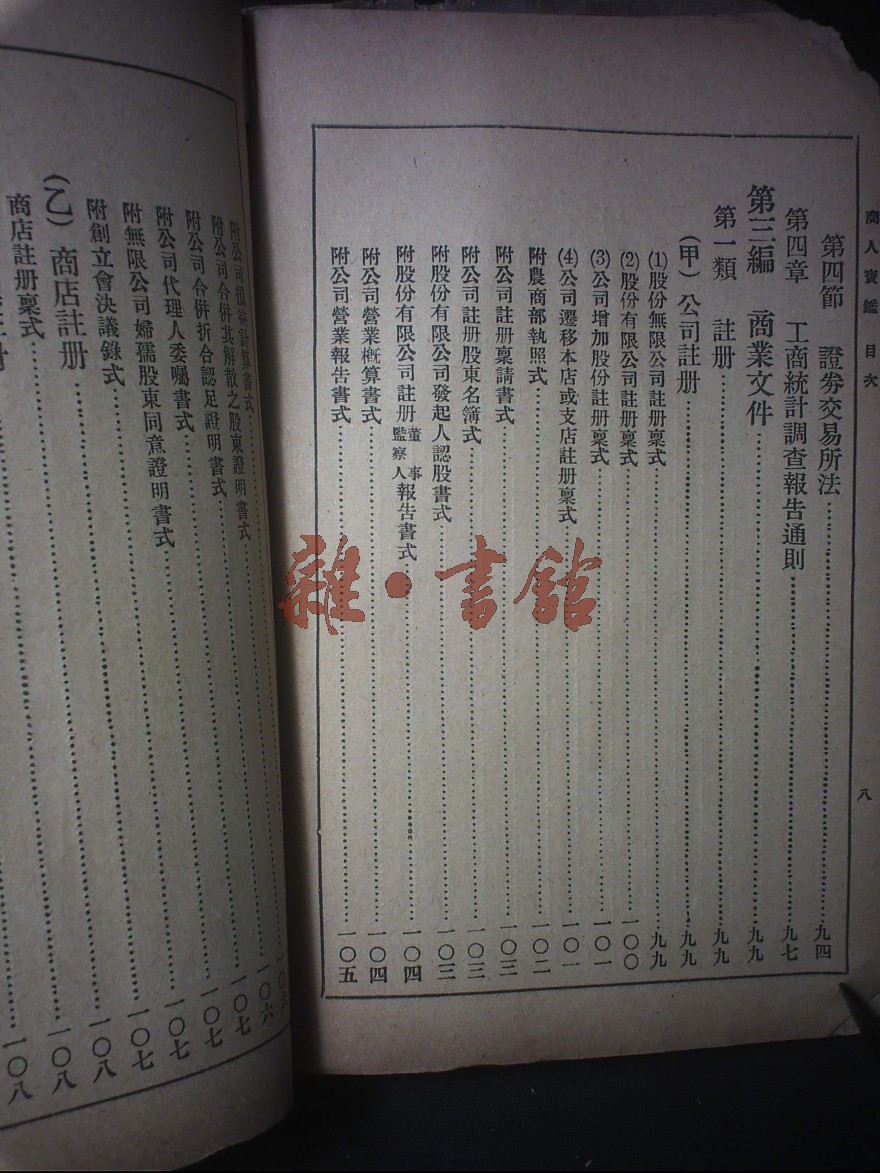 商人寶鑑 目次
八
第四節 證劵交易所法 九四
第四章 工商統計調查報告通則 九七
第三編 商業文件 九九
第一類 註册 九九
(甲)公司註册 九九
(1)股份無限公司註册稟式 九九
(2)股份有限公司註册稟式 一〇〇
(3)公司增加股份註册稟式 一〇一
(4)公司遷移本店或支店註册稟式 一〇一
附農商部執照式 一〇二
附公司註册稟請書式 一〇三
附公司註册股東名簿式 一〇三
附股份有限公司發起人認股書式 一〇三
附股份有限公司註册董事監察人報告書式 一〇四
附公司營業概算書式 一〇四
附公司營業報告書式 一〇五
附公司損益計算書式 一〇六
附公司合併其解散之股東證明書式 一〇六
附公司合併折合認足證明書式 一〇七
附公司代理人委囑書式 一〇七
附無限公司婦孺股東同意證明書式 一〇七
附創立會決議錄式 一〇七
(乙)商店註册 一〇八
商店註册稟式 一〇八
雜·書館